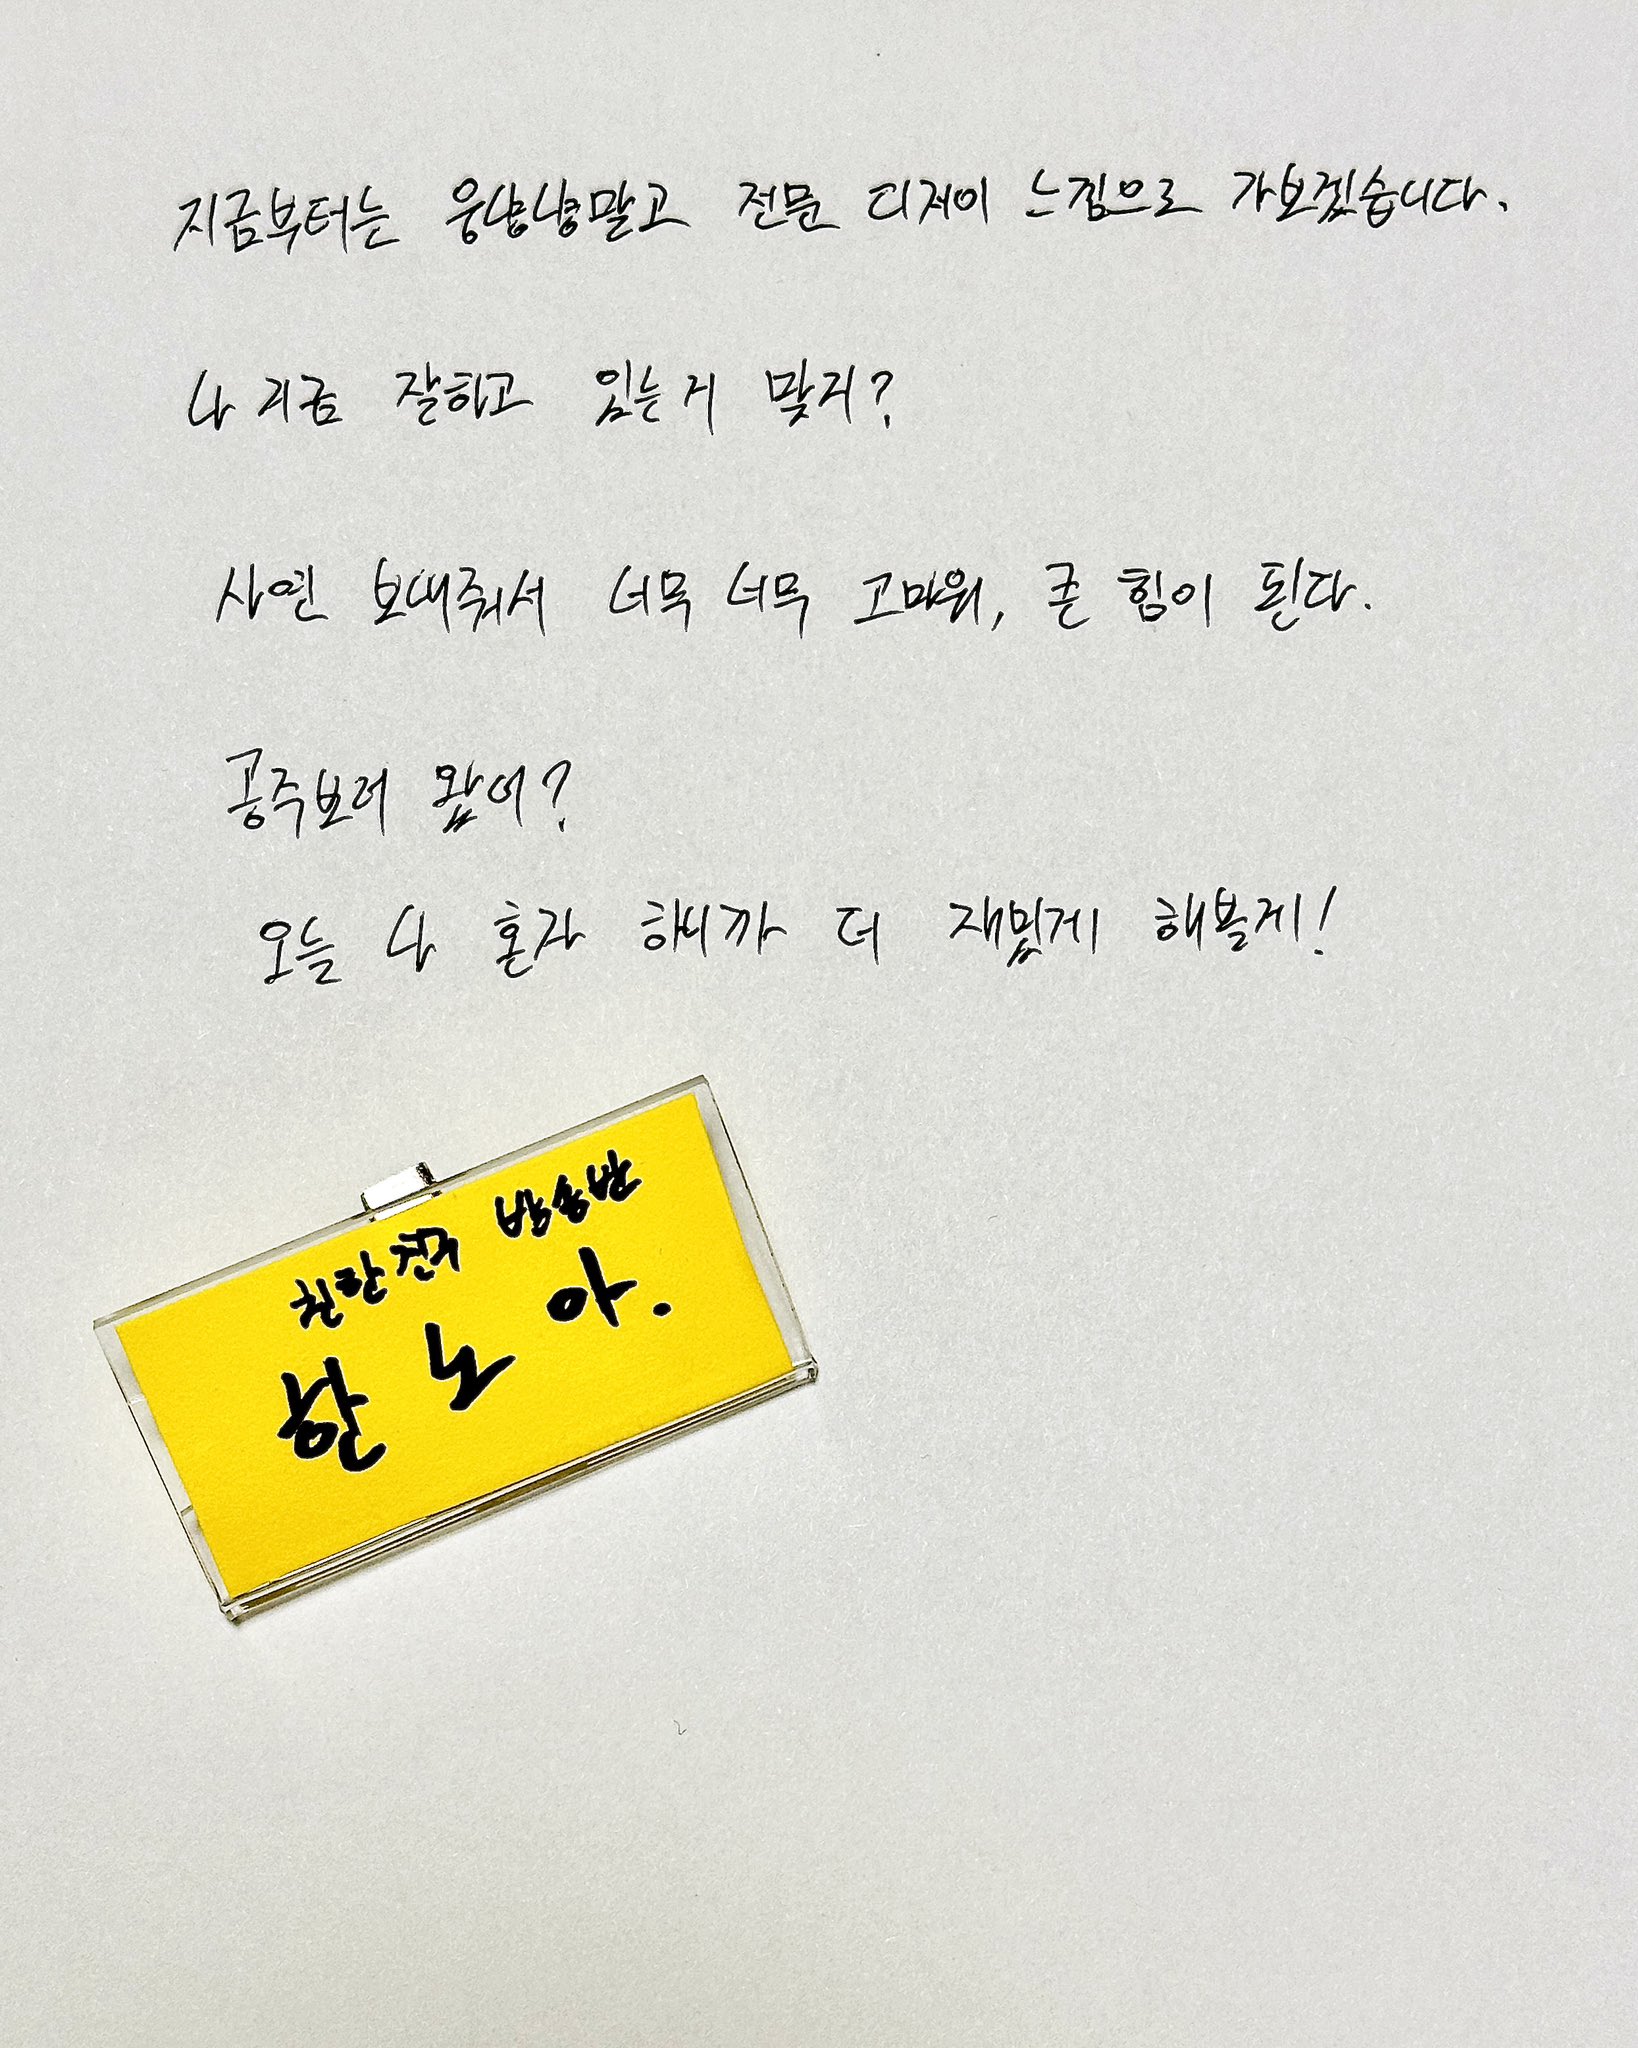 지금부터는 웅냥냥말고 전문 디제이 느낌으로 가보겠습니다.
나 지금 잘하고 있는거 맞지?
사연 보내줘서 너무 너무 고마워, 큰 힘이 된다.
공주보러 왔어?
오늘 나 혼자 하니까 더 재밌게 해볼게!
친한친구 방송반
한 노 아.